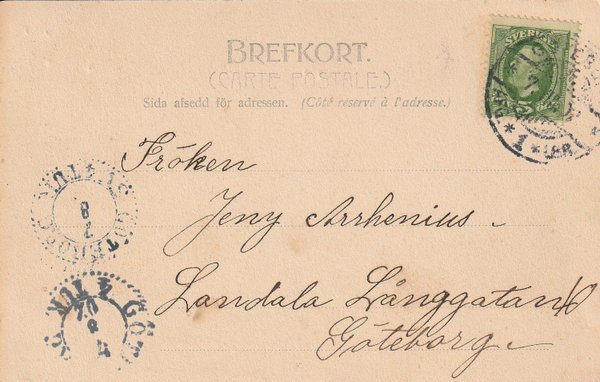 BREFKORT.
(CARTE POSTALE.)
Sida afsedd för adressen. (Côté réservé à l'adresse.)
SVERIGE
Fröken
Jeny Arrhenius.
Landala Långgatan
Göteborg.